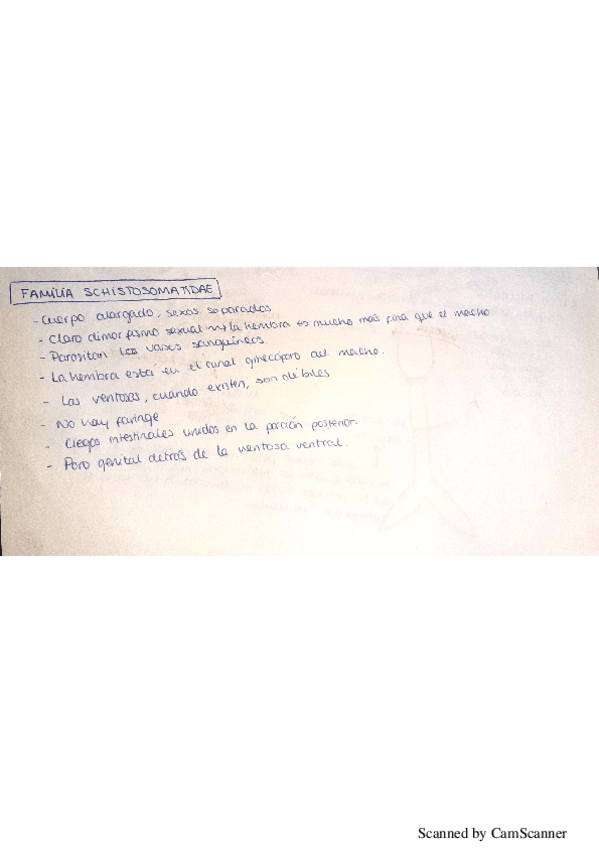 FAMILIA SCHISTOSOMATIDAE
- Cuerpo alargado, sexos separados
- Claro dimorfismo sexual → la hembra es mucho más fina que el macho
- Parasitan los vasos sanguíneos.
- La hembra está en el canal ginecóforo del macho.
- Las ventosas, cuando existen, son débiles
- No hay faringe
- Ciegos intestinales unidos en la porción posterior.
- Poro genital detrás de la ventosa ventral.
Scanned by CamScanner